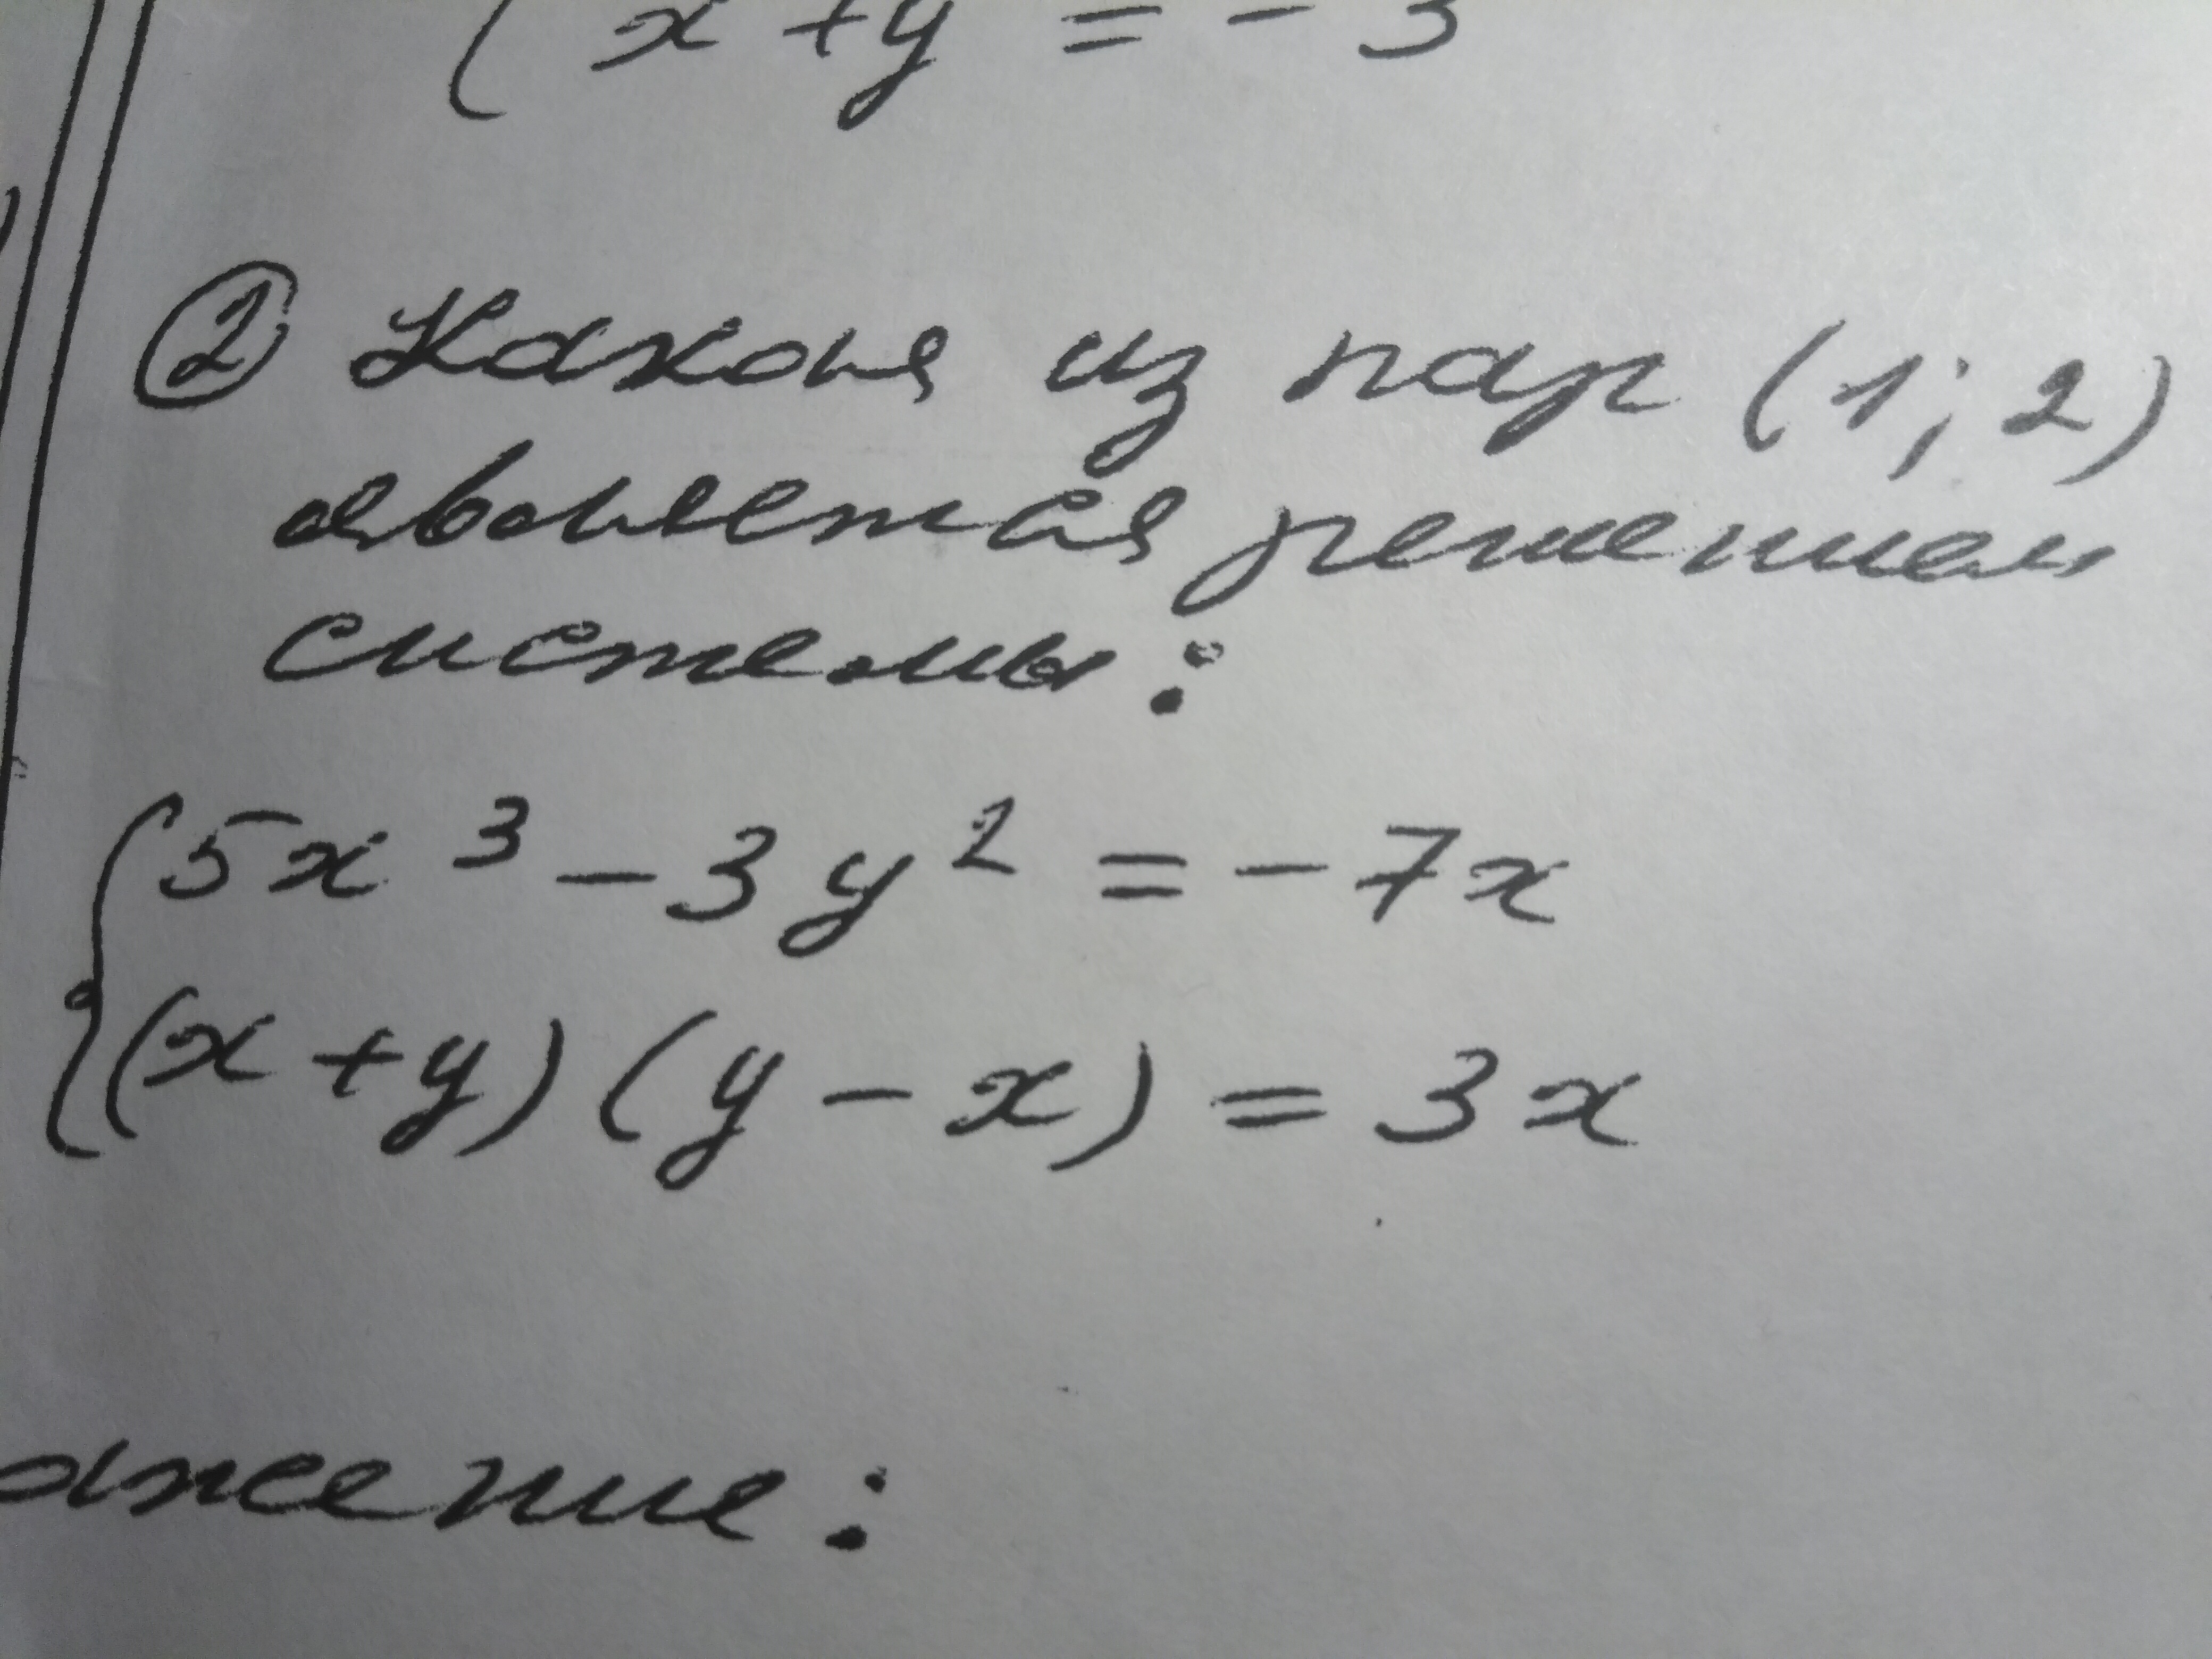 { x + y = - 3
② Какая из пар (1; 2)
является решением
системы:
{ 5x³ - 3y² = - 7x
(x + y) (y - x) = 3x
ожение: